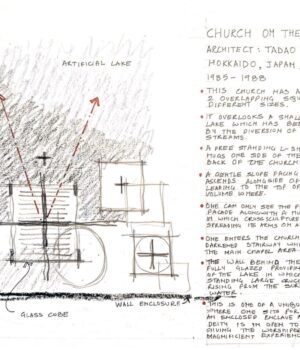 CHURCH ON THE
ARCHITECT : TADAO
HOKKAIDO, JAPAN.
1985 - 1988
ARTIFICIAL LAKE
• THIS CHURCH HAS A
2 OVERLAPPING SQU
DIFFERENT SIZES.
• IT OVERLOOKS A SMALL
LAKE WHICH HAS BEE
BY THE DIVERSION OF
STREAMS.
• A FREE STANDING L-SH
HUGS ONE SIDE OF THE
BACK OF THE CHURCH
• A GENTLE SLOPE FACING
ASCENDS ALONGSIDE OF
LEADING TO THE TOP OF
VOLUME WHERE.
• ONE CAN ONLY SEE THE
FACADE ALONGWITH A
IN WHICH CROSS SCULPTURE
SPREADING ITS ARMS ON A
• ONE ENTERS THE CHURCH
DARKENED STAIRWAY WH
THE MAIN CHAPEL AREA
• THE WALL BEHIND THE
FULLY GLAZED PROVIDING
OF THE LAKE IN WHICH
STANDING LARGE CRUCI
RISING FROM THE SUR
WATER.
• THIS IS ONE OF A UNIQUE
WHERE ONE SITS FOR
AN ENCLOSED ENCLAVE
DEITY IS IN OPEN TO
GIVING THE WORSHIPPER
MAGNIFICIENT EXPERIEN
WALL ENCLOSURE
GLASS CUBE